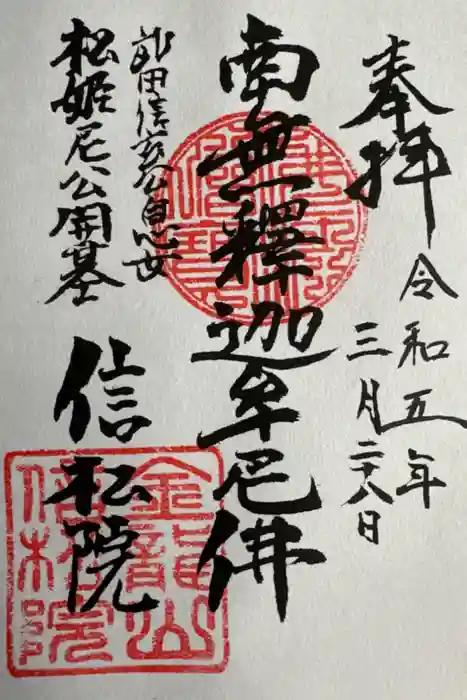 奉拝
令和五年
三月二十八日
南無釋迦牟尼佛
武田信玄公息女
松姫尼公開基
信松院
金龍山
信松院